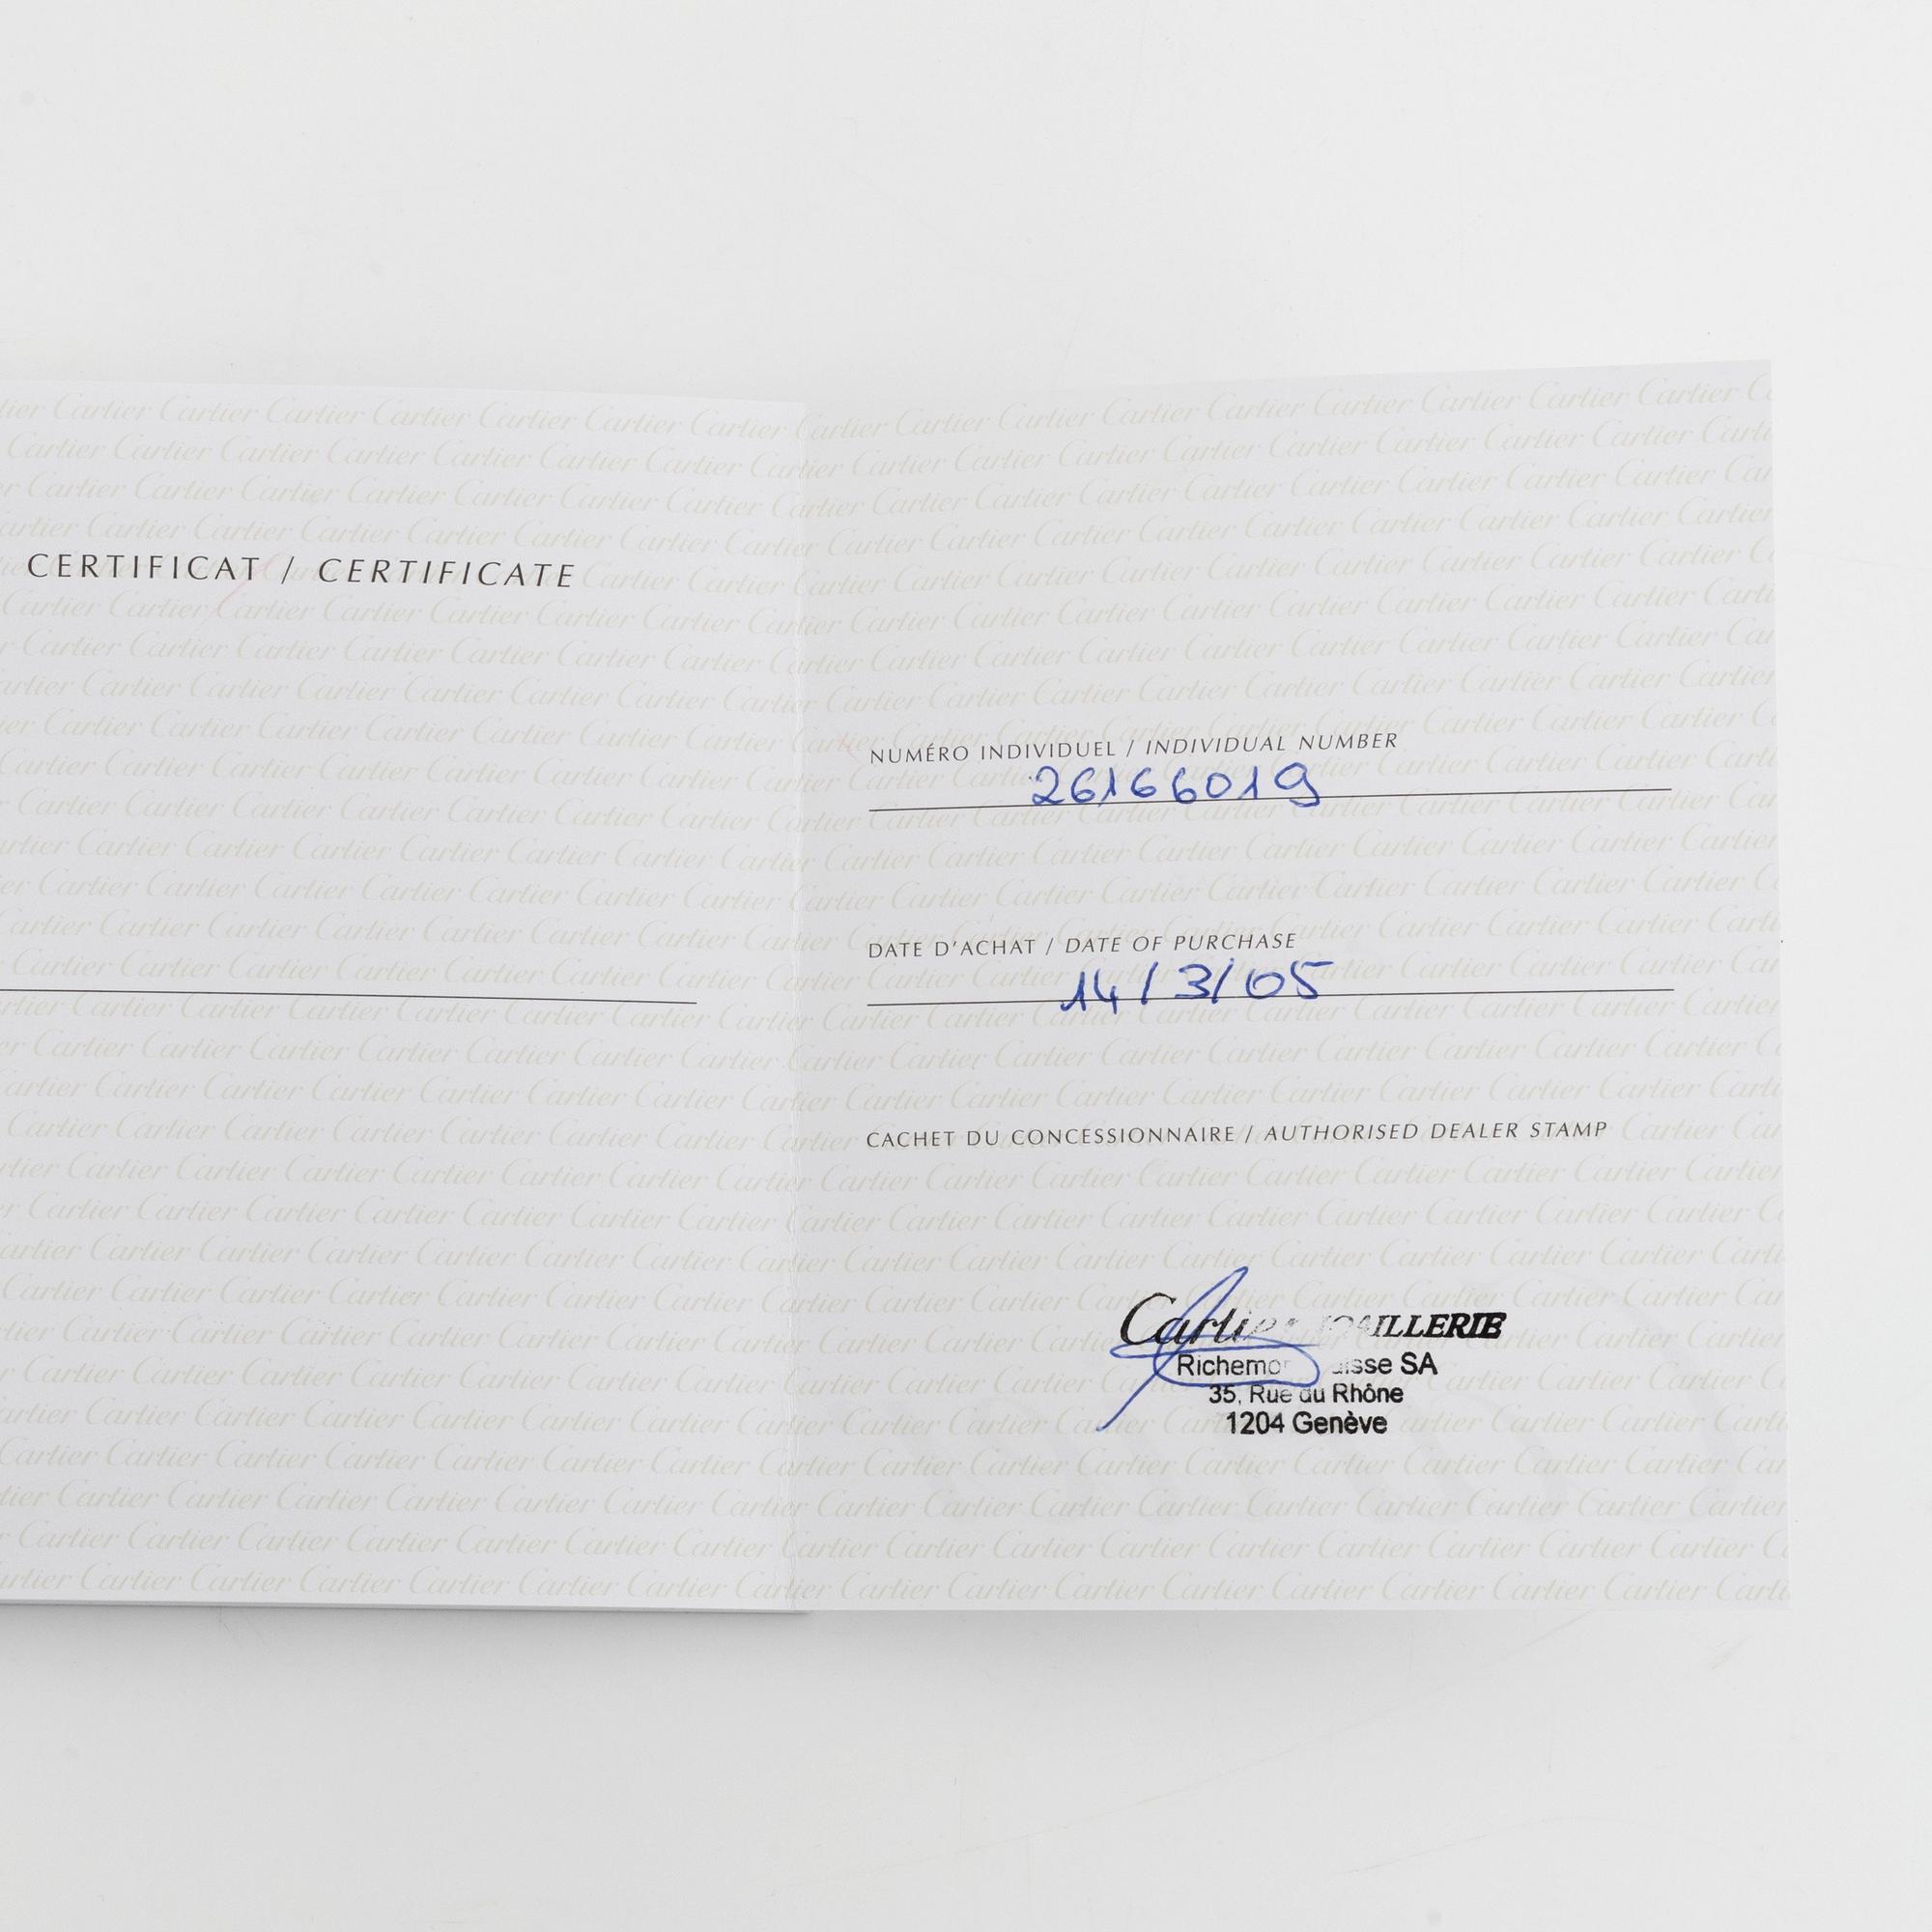 CERTIFICAT / CERTIFICATE
NUMÉRO INDIVIDUEL / INDIVIDUAL NUMBER
26166019
DATE D'ACHAT / DATE OF PURCHASE
14/3/05
CACHET DU CONCESSIONNAIRE / AUTHORISED DEALER STAMP
Cartier
SA
35, Rue du Rhône
1204 Genève